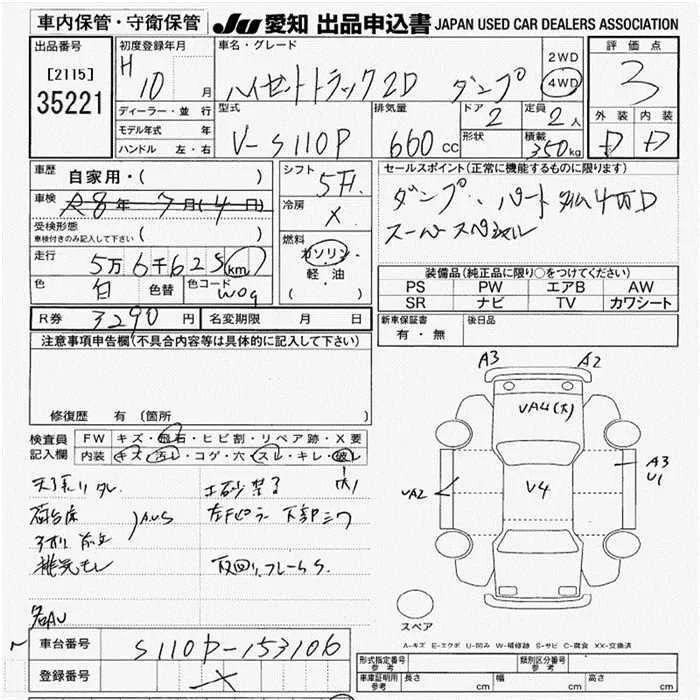 車内保管・守衛保管 JU 愛知 出品申込書 JAPAN USED CAR DEALERS ASSOCIATION
出品番号
[2115]
35221
初度登録年月
H 10 月
ディーラー・並 行
モデル年式 年
ハンドル 左・右
車名・グレード
ハイゼットトラック2D ダンプ
2WD
4WD
評価点
3
外装 内装
D D
型式
V-S110P
排気量
660 CC
ドア
2
形状
定員
2 人
積載
350kg
車歴
自家用・( )
車検
R8年 7月(4日)
受検形態
車検付きのみ記入して下さい ( )
走行
5万6千625 km
色
白
色替
色コード
W09
シフト
5F
冷房
×
燃料
ガソリン
軽・油
( )
セールスポイント(正常に機能するものに限ります)
ダンプ、パートタイム4WD
スーパースペシャル
装備品(純正品に限り○をつけてください)
PS PW エアB AW
SR ナビ TV カワシート
R券 3290 円 名変期限 月 日
新車保証書
有・無
後日品
注意事項申告欄(不具合内容等は具体的に記入して下さい)
修復歴 有(箇所
検査員
記入欄
FW キズ・飛石・ヒビ割・リペア跡・X要
内装 キズ・汚レ・コゲ・穴・スレ・キレ・破レ
天張りタレ
荷台床
AUS
土砂禁
左Fピラー下部シワ
下回り、フレームS
A3 A2
UA4(大)
UA2
V4
A3
U1
スペア
A-キズ E-エクボ U-凹み W-補修跡 S-サビ C-腐食 XX-交換済
車台番号
S110P-153106
登録番号
×
形式指定番号
参考
類別区分番号
参考
車庫証明用
参考
長さ cm 幅 cm 高さ cm